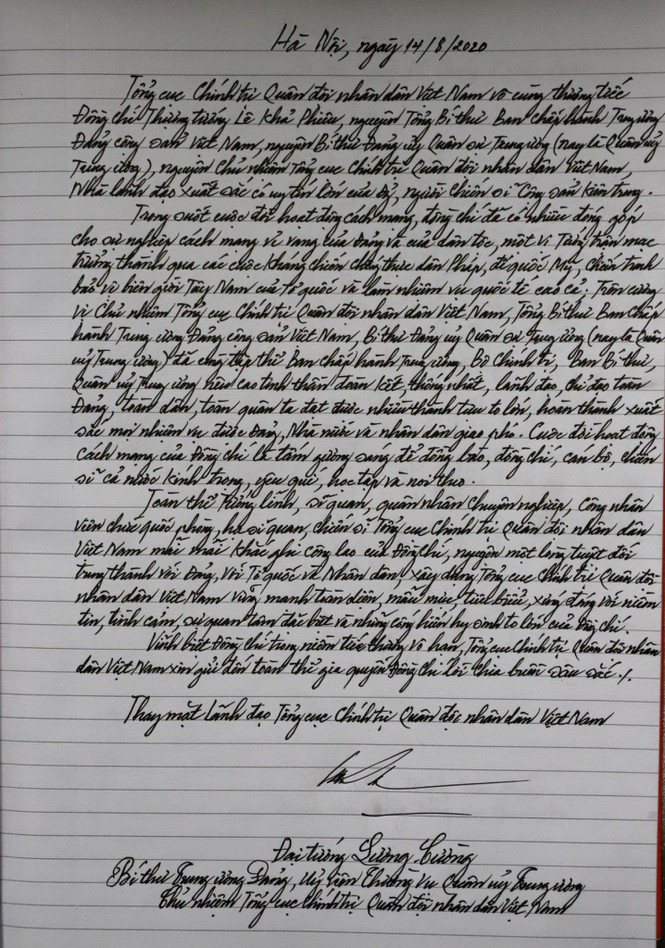 Hà Nội, ngày 14/8/2020
Tổng cục Chính trị Quân đội nhân dân Việt Nam vô cùng thương tiếc
Đồng chí Thượng tướng Lê Khả Phiêu, nguyên Tổng Bí thư Ban chấp hành Trung ương
Đảng cộng sản Việt Nam, nguyên Bí thư Đảng ủy Quân sự Trung ương (nay là Quân uỷ
Trung ương), nguyên Chủ nhiệm Tổng cục Chính trị Quân đội nhân dân Việt Nam,
Nhà lãnh đạo xuất sắc có uy tín lớn của Đảng, người chiến sĩ Cộng sản Kiên trung.
Trong suốt cuộc đời hoạt động cách mạng, đồng chí đã có nhiều đóng góp
cho sự nghiệp cách mạng vẻ vang của Đảng và của dân tộc, một vị Tướng trận mạc
trưởng thành qua các cuộc Kháng chiến chống thực dân Pháp, đế quốc Mỹ, chiến tranh
bảo vệ biên giới Tây Nam của Tổ quốc và làm nhiệm vụ quốc tế cao cả; Trên cương
vị Chủ nhiệm Tổng cục Chính trị Quân đội nhân dân Việt Nam, Tổng Bí thư Ban Chấp
hành Trung ương Đảng cộng sản Việt Nam, Bí thư Đảng uỷ Quân sự Trung ương (nay là Quân
uỷ Trung ương) đã cùng tập thể Ban chấp hành Trung ương, Bộ Chính trị, Ban Bí thư,
Quân uỷ Trung ương nêu cao tinh thần đoàn kết thống nhất, lãnh đạo, chỉ đạo toàn
Đảng, toàn dân, toàn quân ta đạt được nhiều thành tựu to lớn, hoàn thành xuất
sắc mọi nhiệm vụ được Đảng, Nhà nước và nhân dân giao phó. Cuộc đời hoạt động
cách mạng của Đồng chí là tấm gương sáng để đồng bào, đồng chí, cán bộ, chiến
sĩ cả nước kính trọng, yêu quí, học tập và noi theo.
Toàn thể Tướng lĩnh, sĩ quan, quân nhân chuyên nghiệp, Công nhân
viên chức quốc phòng, hạ sĩ quan, chiến sĩ Tổng cục Chính trị Quân đội nhân dân
Việt Nam mãi mãi Khắc ghi công lao của Đồng chí, nguyện một lòng tuyệt đối
trung thành với Đảng, với Tổ quốc và Nhân dân, xây dựng Tổng cục Chính trị Quân đội
nhân dân Việt Nam vững mạnh toàn diện, mẫu mực, tiêu biểu, xứng đáng với niềm
tin, tình cảm, sự quan tâm đặc biệt và những cống hiến hy sinh to lớn của Đồng chí.
Vĩnh biệt Đồng chí trong niềm tiếc thương vô hạn, Tổng cục Chính trị Quân đội nhân
dân Việt Nam xin gửi đến toàn thể gia quyến Đồng chí lời Chia buồn sâu sắc ./.
Thay mặt lãnh đạo Tổng cục Chính trị Quân đội nhân dân Việt Nam
Đại tướng Lương Cường
Bí thư Trung ương Đảng, Uỷ viên Thường vụ Quân uỷ Trung ương
Chủ nhiệm Tổng cục Chính trị Quân đội nhân dân Việt Nam